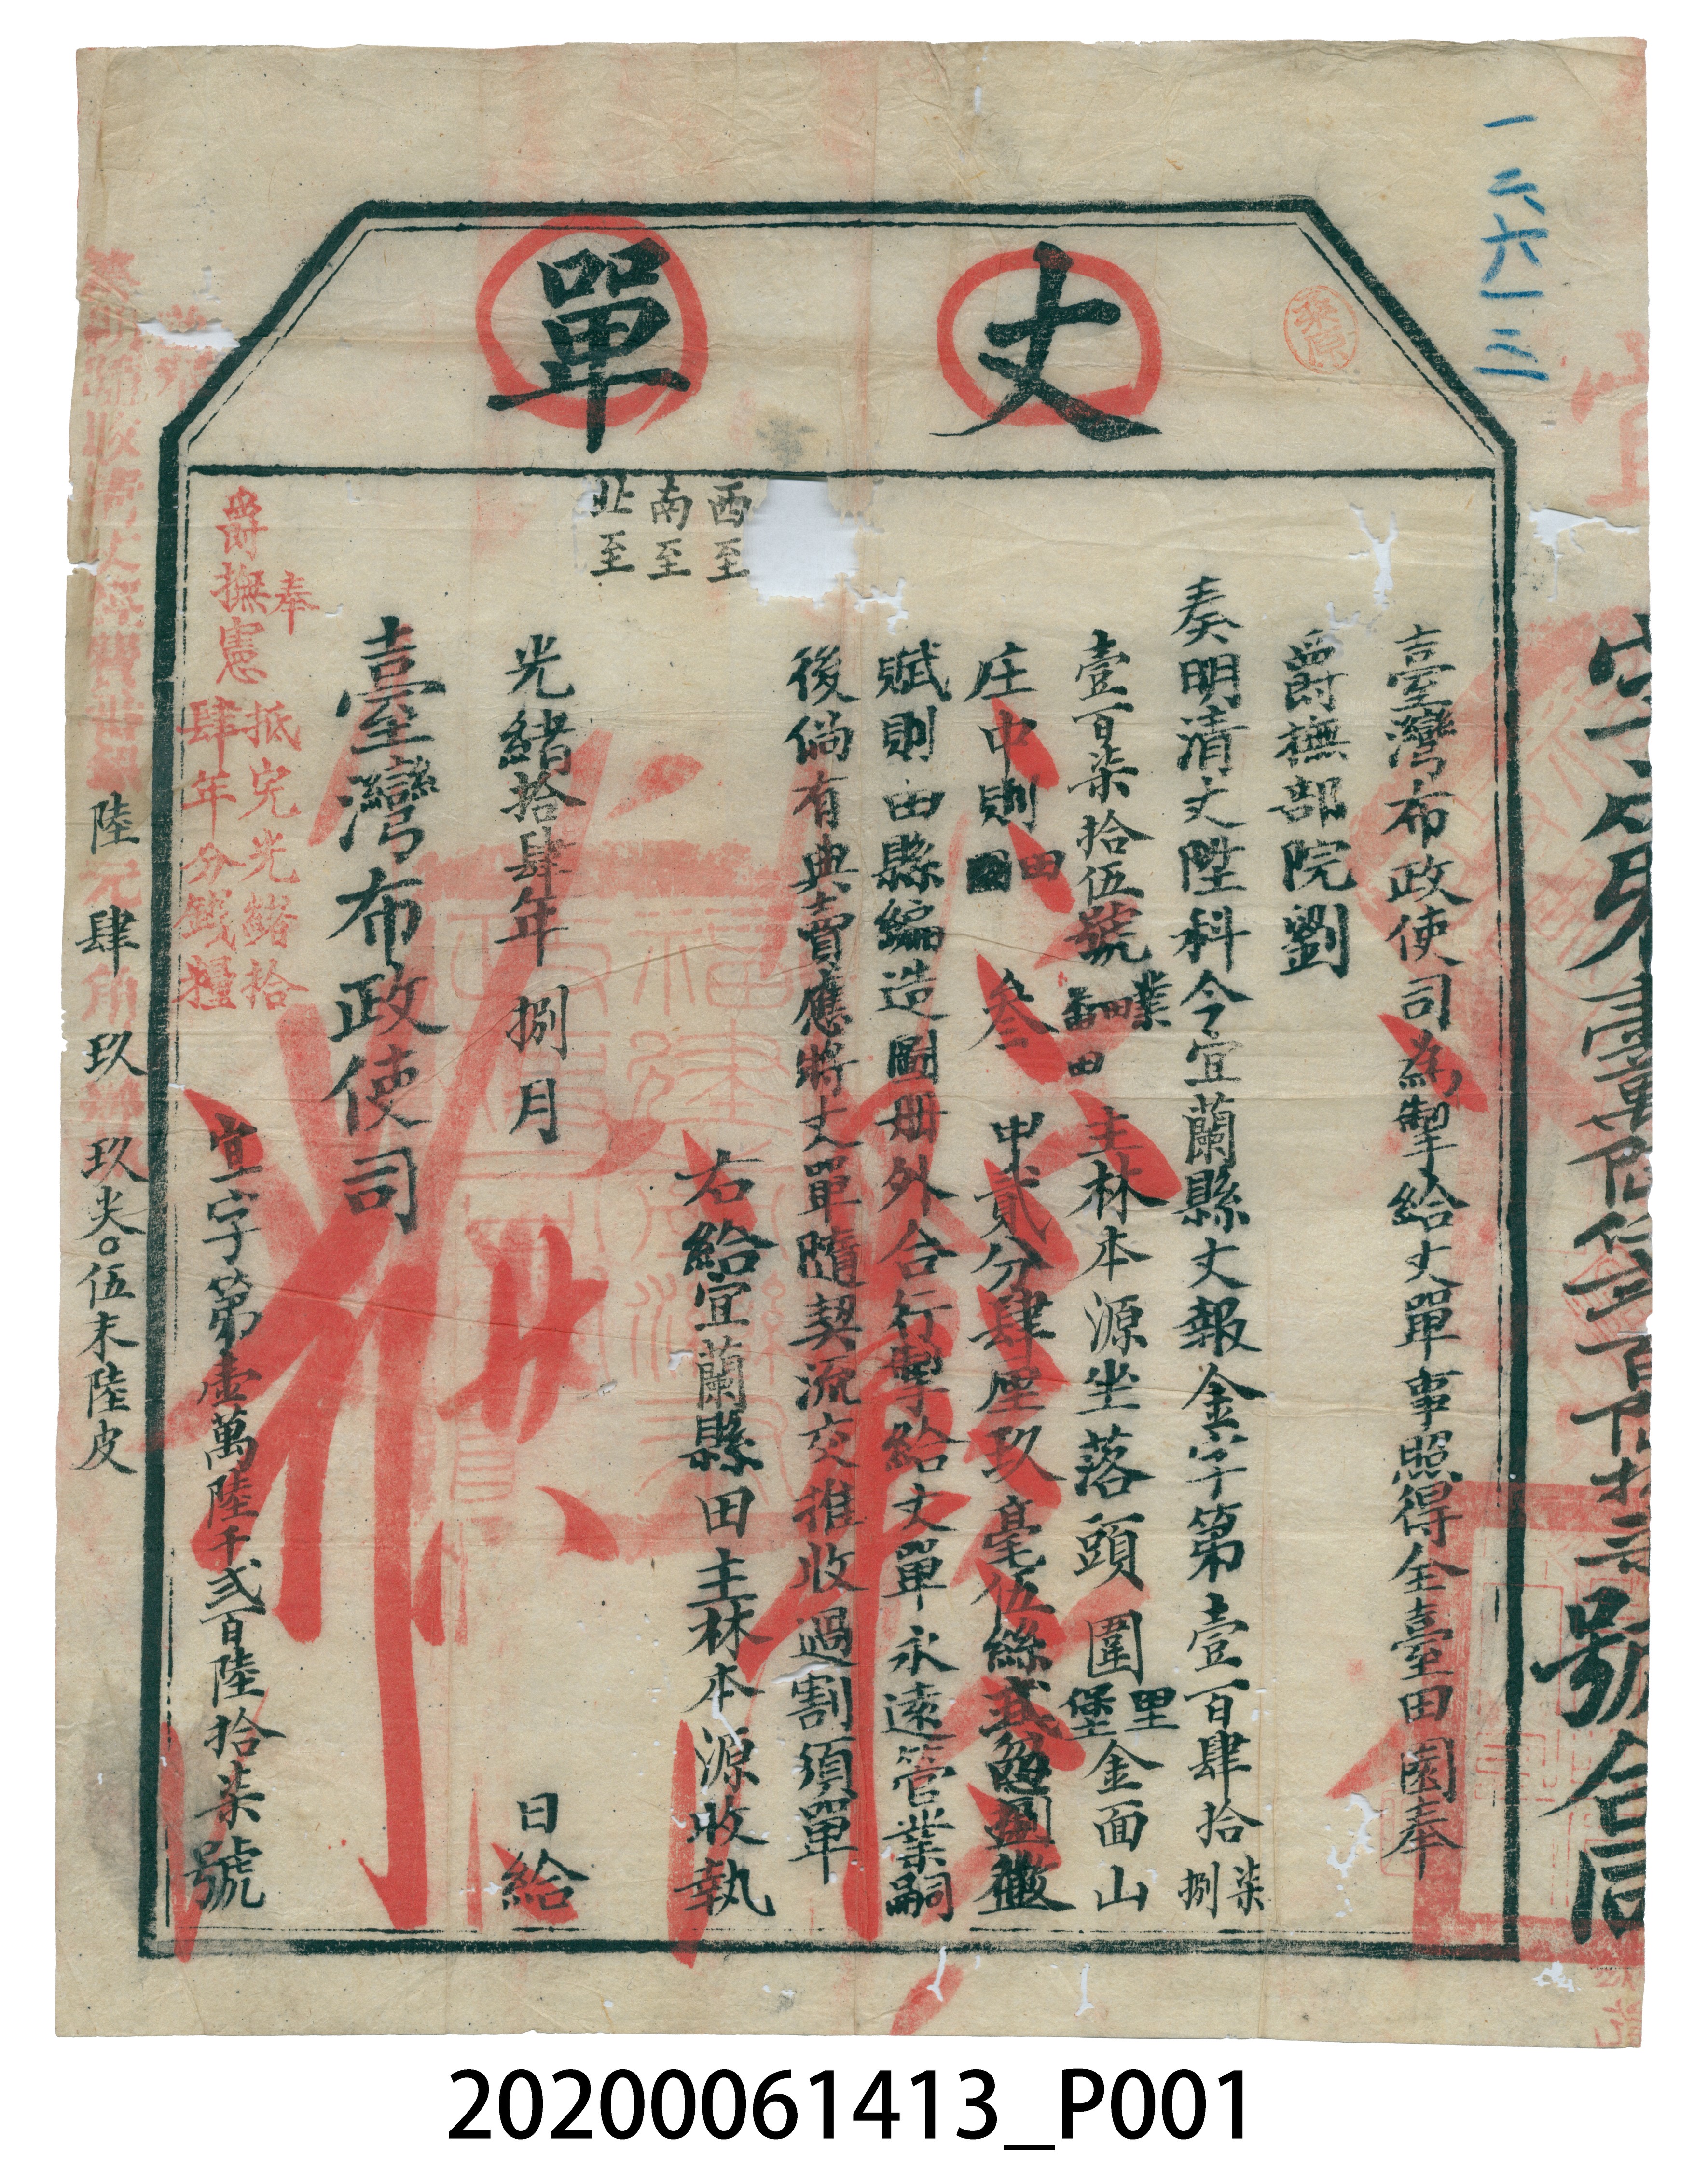 一六六一三
丈單
臺灣布政使司為掣給丈單事照得全臺田園奉
爵撫部院劉
奏明清丈陞科今宜蘭縣丈報金字第壹百肆拾柒捌
壹百柒拾伍號業田主林本源坐落頭圍里堡金面山
庄中則田叁甲貳分肆厘玖毫伍絲
賦則由縣編造圖册外合行掣給丈單永遠管業嗣
後倘有典賣應將丈單隨契流交推收過割須單
右給宜蘭縣田主林本源收執
西至
南至
北至
光緒拾肆年捌月日給
臺灣布政使司
宜字第壹萬陸千貳百陸拾柒號
奉
爵撫憲
抵完光緒拾
肆年分錢糧
陸元肆角玖玖尖〇伍末陸皮
號合同
20200061413_P001